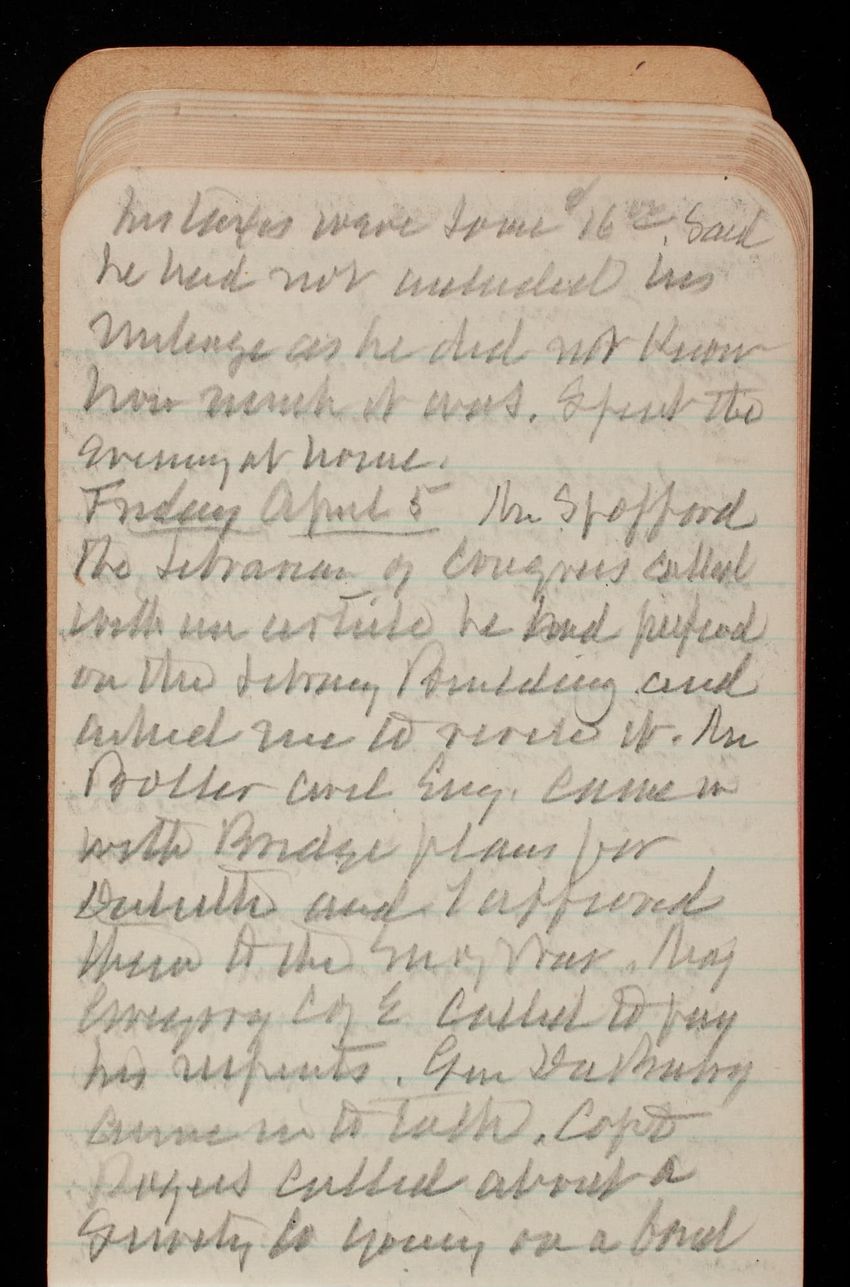 his taxes were some $16.00 Said
he had not included his
mileage as he did not know
how much it was. Spent the
evening at home.
Friday April 5 Mr Spofford
the Librarian of Congress called
with an article he had prepared
on the Library Building and
asked me to revise it. Mr
Boller Civil Eng. came in
with Bridge plans for
Duluth and I approved
them to the Secy War. Maj
Gregory C of E called to pay
his respects. Gen DuBarry
came in to talk. Capt
Rogers called about a
Surety Co going on a bond